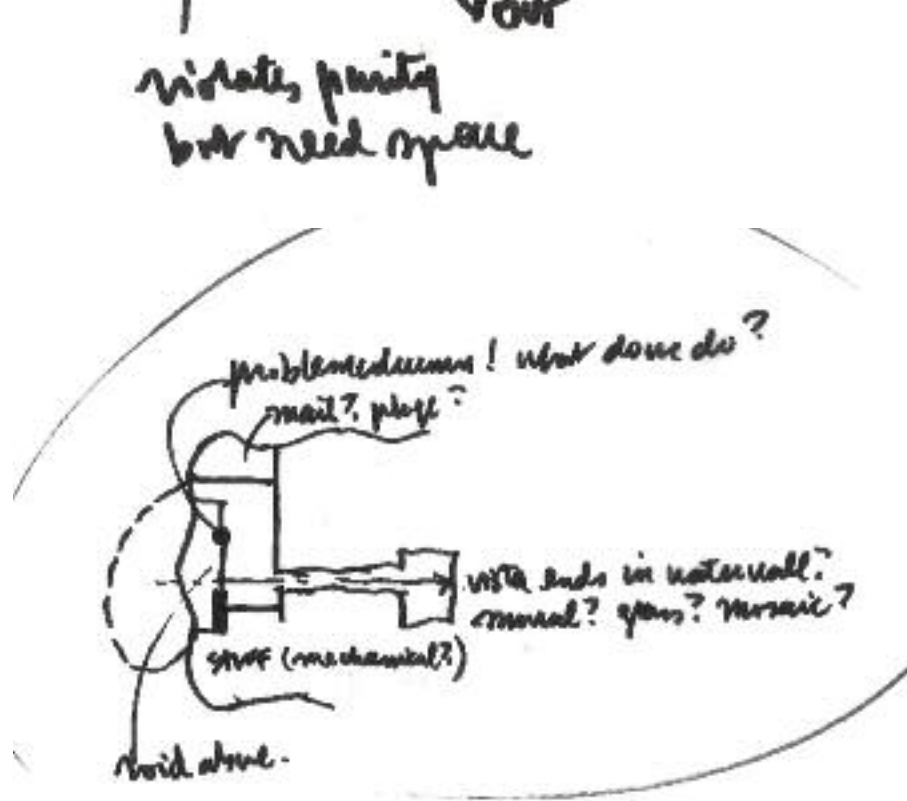 our
violates purity
but need space
problem column! what does do?
mail? phone?
vista ends in waterwall?
mural? grass? mosaic?
stuff (mechanical?)
void above.